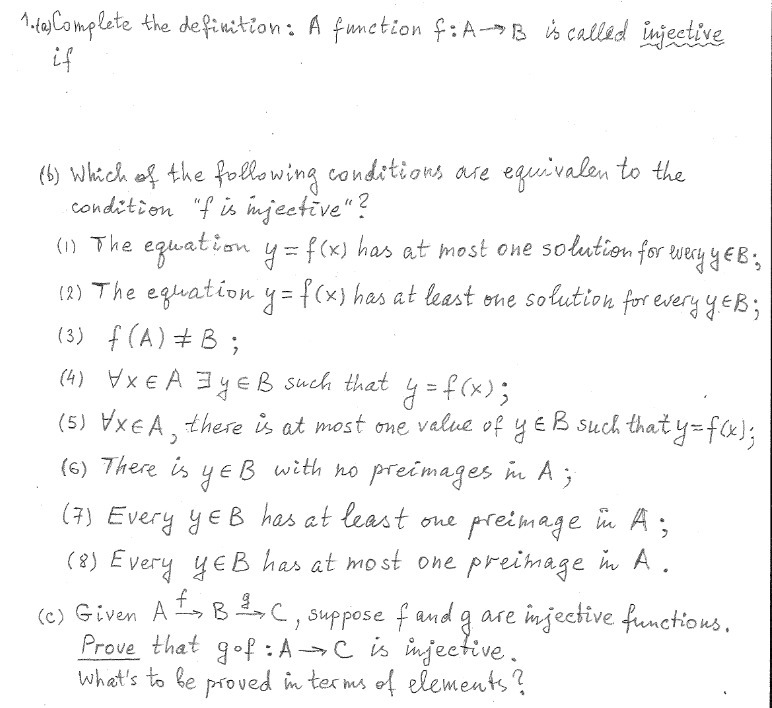 1.(a) Complete the definition: A function f: A → B is called injective
if
(b) Which of the following conditions are equivalen to the
condition "f is injective"?
(1) The equation y = f(x) has at most one solution for every y ∈ B;
(2) The equation y = f(x) has at least one solution for every y ∈ B;
(3) f(A) ≠ B ;
(4) ∀x ∈ A ∃ y ∈ B such that y = f(x);
(5) ∀x ∈ A, there is at most one value of y ∈ B such that y = f(x);
(6) There is y ∈ B with no preimages in A ;
(7) Every y ∈ B has at least one preimage in A ;
(8) Every y ∈ B has at most one preimage in A .
(c) Given A f→ B g→ C, suppose f and g are injective functions.
Prove that g∘f : A → C is injective.
What's to be proved in terms of elements?